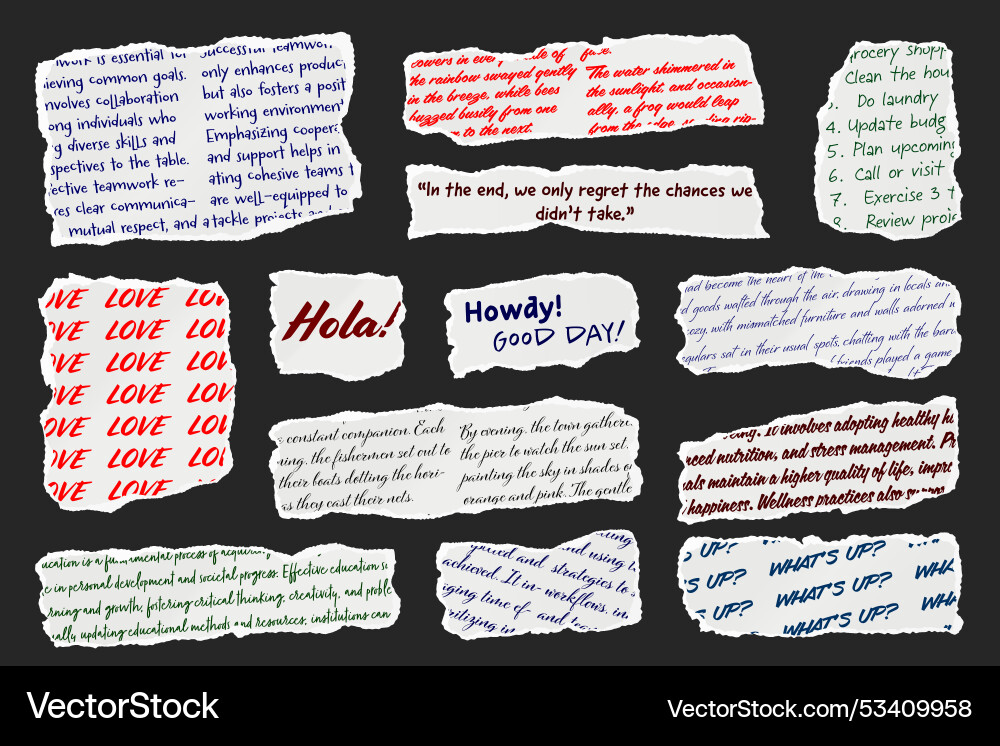 is essential
ieving common goals.
nvolves collaboration
ong individuals who
g diverse skills and
spectives to the table.
ective teamwork re-
res clear communica-
mutual respect, and a
uccessful teamwor
only enhances produc
but also fosters a posit
working environmen
Emphasizing cooper
and support helps in
ating cohesive teams t
are well-equipped to
tackle projects
owers in every of
the rainbow swayed gently
in the breeze, while bees
buzzed busily from one
to the next.
The water shimmered in
the sunlight, and occasion-
ally, a frog would leap
from the
"In the end, we only regret the chances we
didn't take."
rocery shopp
Clean the hou
Do laundry
4. Update budg
5. Plan upcoming
6. Call or visit
7. Exercise 3 t
8. Review proje
OVE LOVE LOV
OVE LOVE LOV
OVE LOVE LOV
OVE LOVE LOV
OVE LOVE LOV
OVE LOVE LOV
OVE LOVE LOV
Hola!
Howdy!
GOOD DAY!
ad become the heart of the
d goods wafted through the air, drawing in locals an
ozy, with mismatched furniture and walls adorned w
gulars sat in their usual spots, chatting with the bar
friends played a game
It
constant companion. Each
ning, the fishermen set out to
their boats dotting the hori-
as they cast their nets.
By evening, the town gather
the pier to watch the sun set,
painting the sky in shades o
orange and pink. The gentle
It involves adopting healthy h
nced nutrition, and stress management. Pr
als maintain a higher quality of life, impro
happiness. Wellness practices also
ucation is a fundamental process of acquiring
e in personal development and societal progress. Effective education s
rning and growth, fostering critical thinking, creativity, and proble
ally updating educational methods and resources, institutions can
and using
strategies to
achieved. It in- workflows, in
ging time of- and
ritizing in
S UP? WHAT'S UP? WH
S UP? WHAT'S UP? WHA
S UP? WHAT'S UP? WHA
WHAT'S UP?
VectorStock
VectorStock.com/53409958